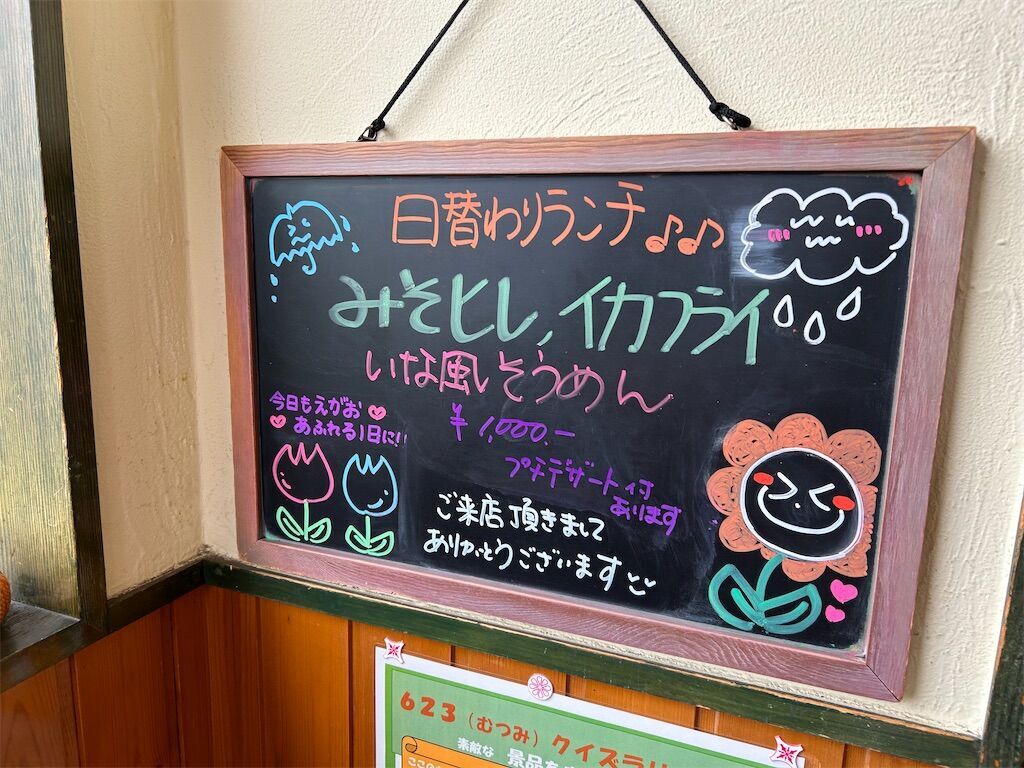 日替わりランチ♪♪
みそヒレ,イカフライ
いなか風そうめん
¥1,000.-
プチデザート付
あります
今日もえがお
あふれる1日に!!
ご来店頂きまして
ありがとうございます
623(むつみ)クイズラリ
素敵な 景品を